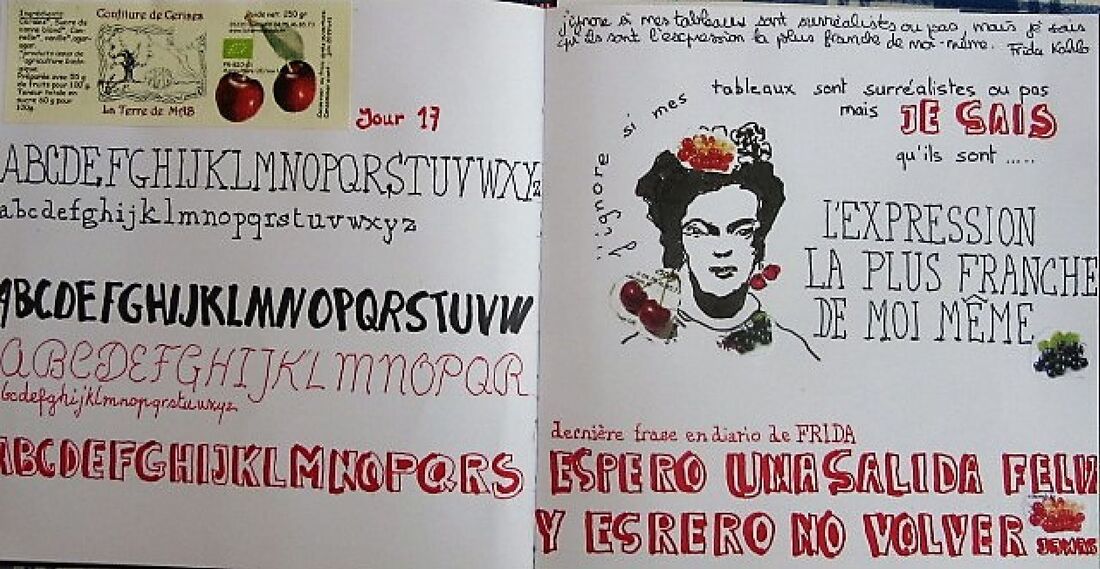 Ingrédients:
Cerises*, Sucre de
canne blond*, Can-
nelle*, vanille*, agar-
agar.
*produits issus de
l'agriculture biolo-
gique.
Préparée avec 55 g
de fruits pour 100 g.
Teneur totale en
sucre 60 g pour
100g.
Confiture de Cerises
La Terre de MAB
Poids net: 250 gr
Jour 17
ABCDEFGHIJKLMNOPQRSTUVWXYz
abcdefghijklmnopqrstuvwxyz
ABCDEFGHIJKLMNOPQRSTUVW
ABCDEFGHIJKLMNOPQR
bcdefghijklmnopqrstuvwxyz
ABCDEFGHIJKLMNOPQRS
j'ignore si mes tableaux sont surréalistes ou pas, mais je sais
qu'ils sont l'expression la plus franche de moi-même. Frida Kahlo
j'ignore si mes tableaux sont surréalistes ou pas
mais JE SAIS
qu'ils sont .....
L'EXPRESSION
LA PLUS FRANCHE
DE MOI MÊME
dernière frase en diario de FRIDA
ESPERO UNA SALIDA FELIZ
Y ESRERO NO VOLVER